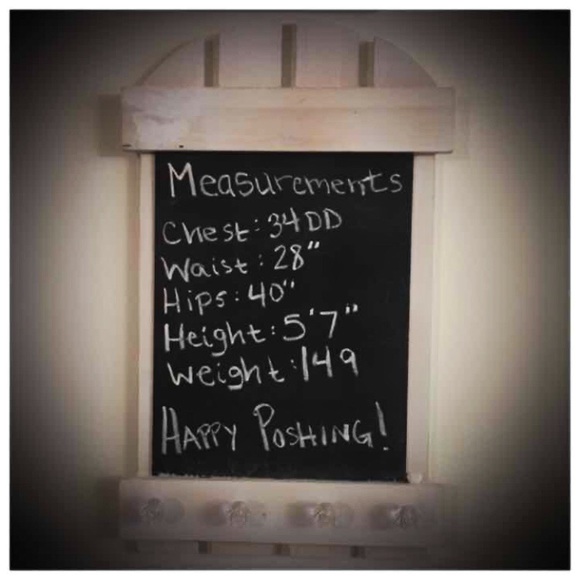 Measurements
Chest: 34DD
Waist: 28"
Hips: 40"
Height: 5'7"
Weight: 149
HAPPY POSHING!